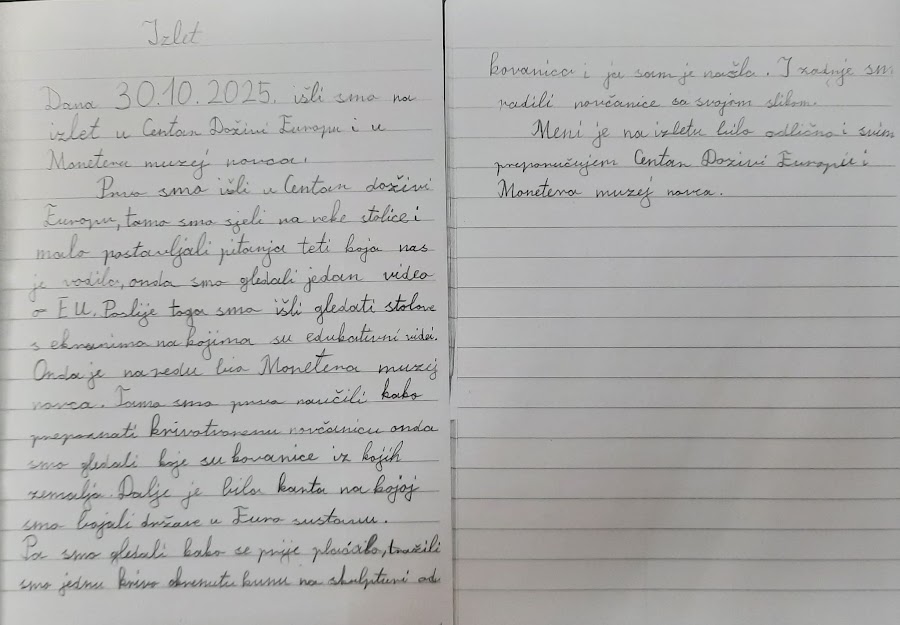 Izlet
Dana 30.10.2025. išli smo na
izlet u Centar Doživi Europu i u
Monetera muzej novca.
Prvo smo išli u Centar doživi
Europu, tamo smo sjeli na neke stolice i
malo postavljali pitanja teti koja nas
je vodila, onda smo gledali jedan video
o EU. Poslije toga smo išli gledati stolove
s ekranima na kojima su edukativni videi.
Onda je na redu bio Monetera muzej
novca. Tamo smo prvo naučili kako
prepoznati krivotvorenu novčanicu onda
smo gledali koje su kovanice iz kojih
zemalja. Dalje je bila karta na kojoj
smo bojali države u Euro sustavu.
Pa smo gledali kako se prije plaćalo, tražili
smo jednu krivo okrenutu kunu na skulpturi od
kovanica i ja sam je našla. I zadnje smo
radili novčanice sa svojom slikom.
Meni je na izletu bilo odlično i svim
preporučujem Centar Doživi Europu i
Monetera muzej novca.